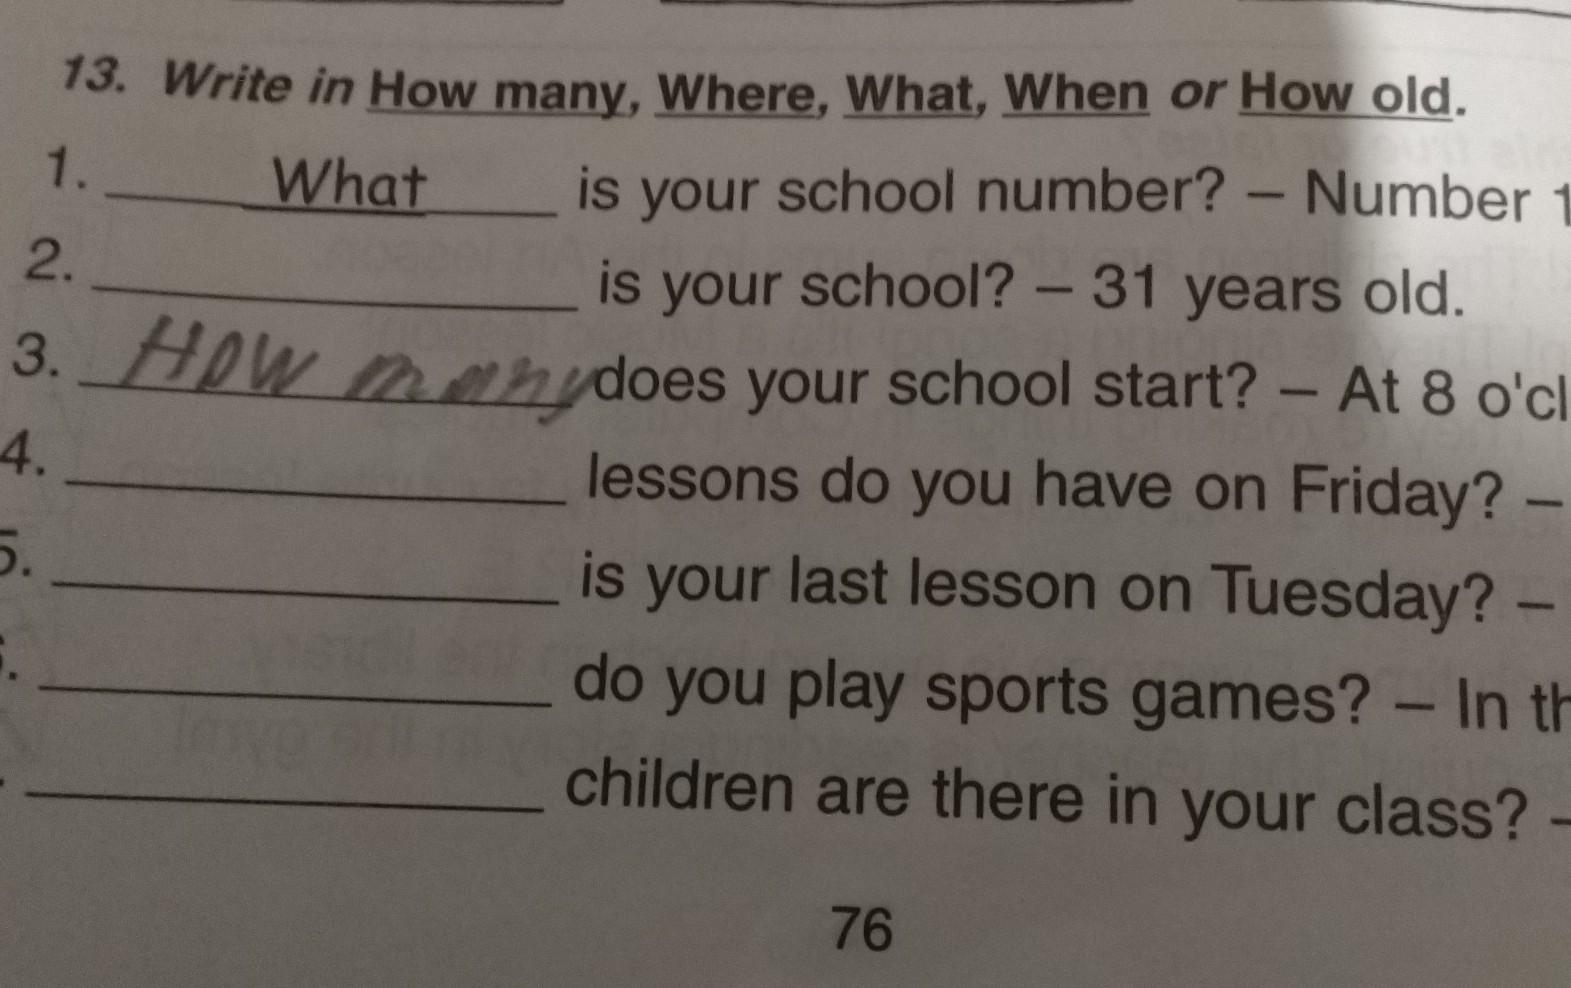 13. Write in How many, Where, What, When or How old.
1. What is your school number? – Number 1
2. is your school? – 31 years old.
3. How many does your school start? – At 8 o'cl
4. lessons do you have on Friday? –
5. is your last lesson on Tuesday? –
do you play sports games? – In th
children are there in your class? –
76